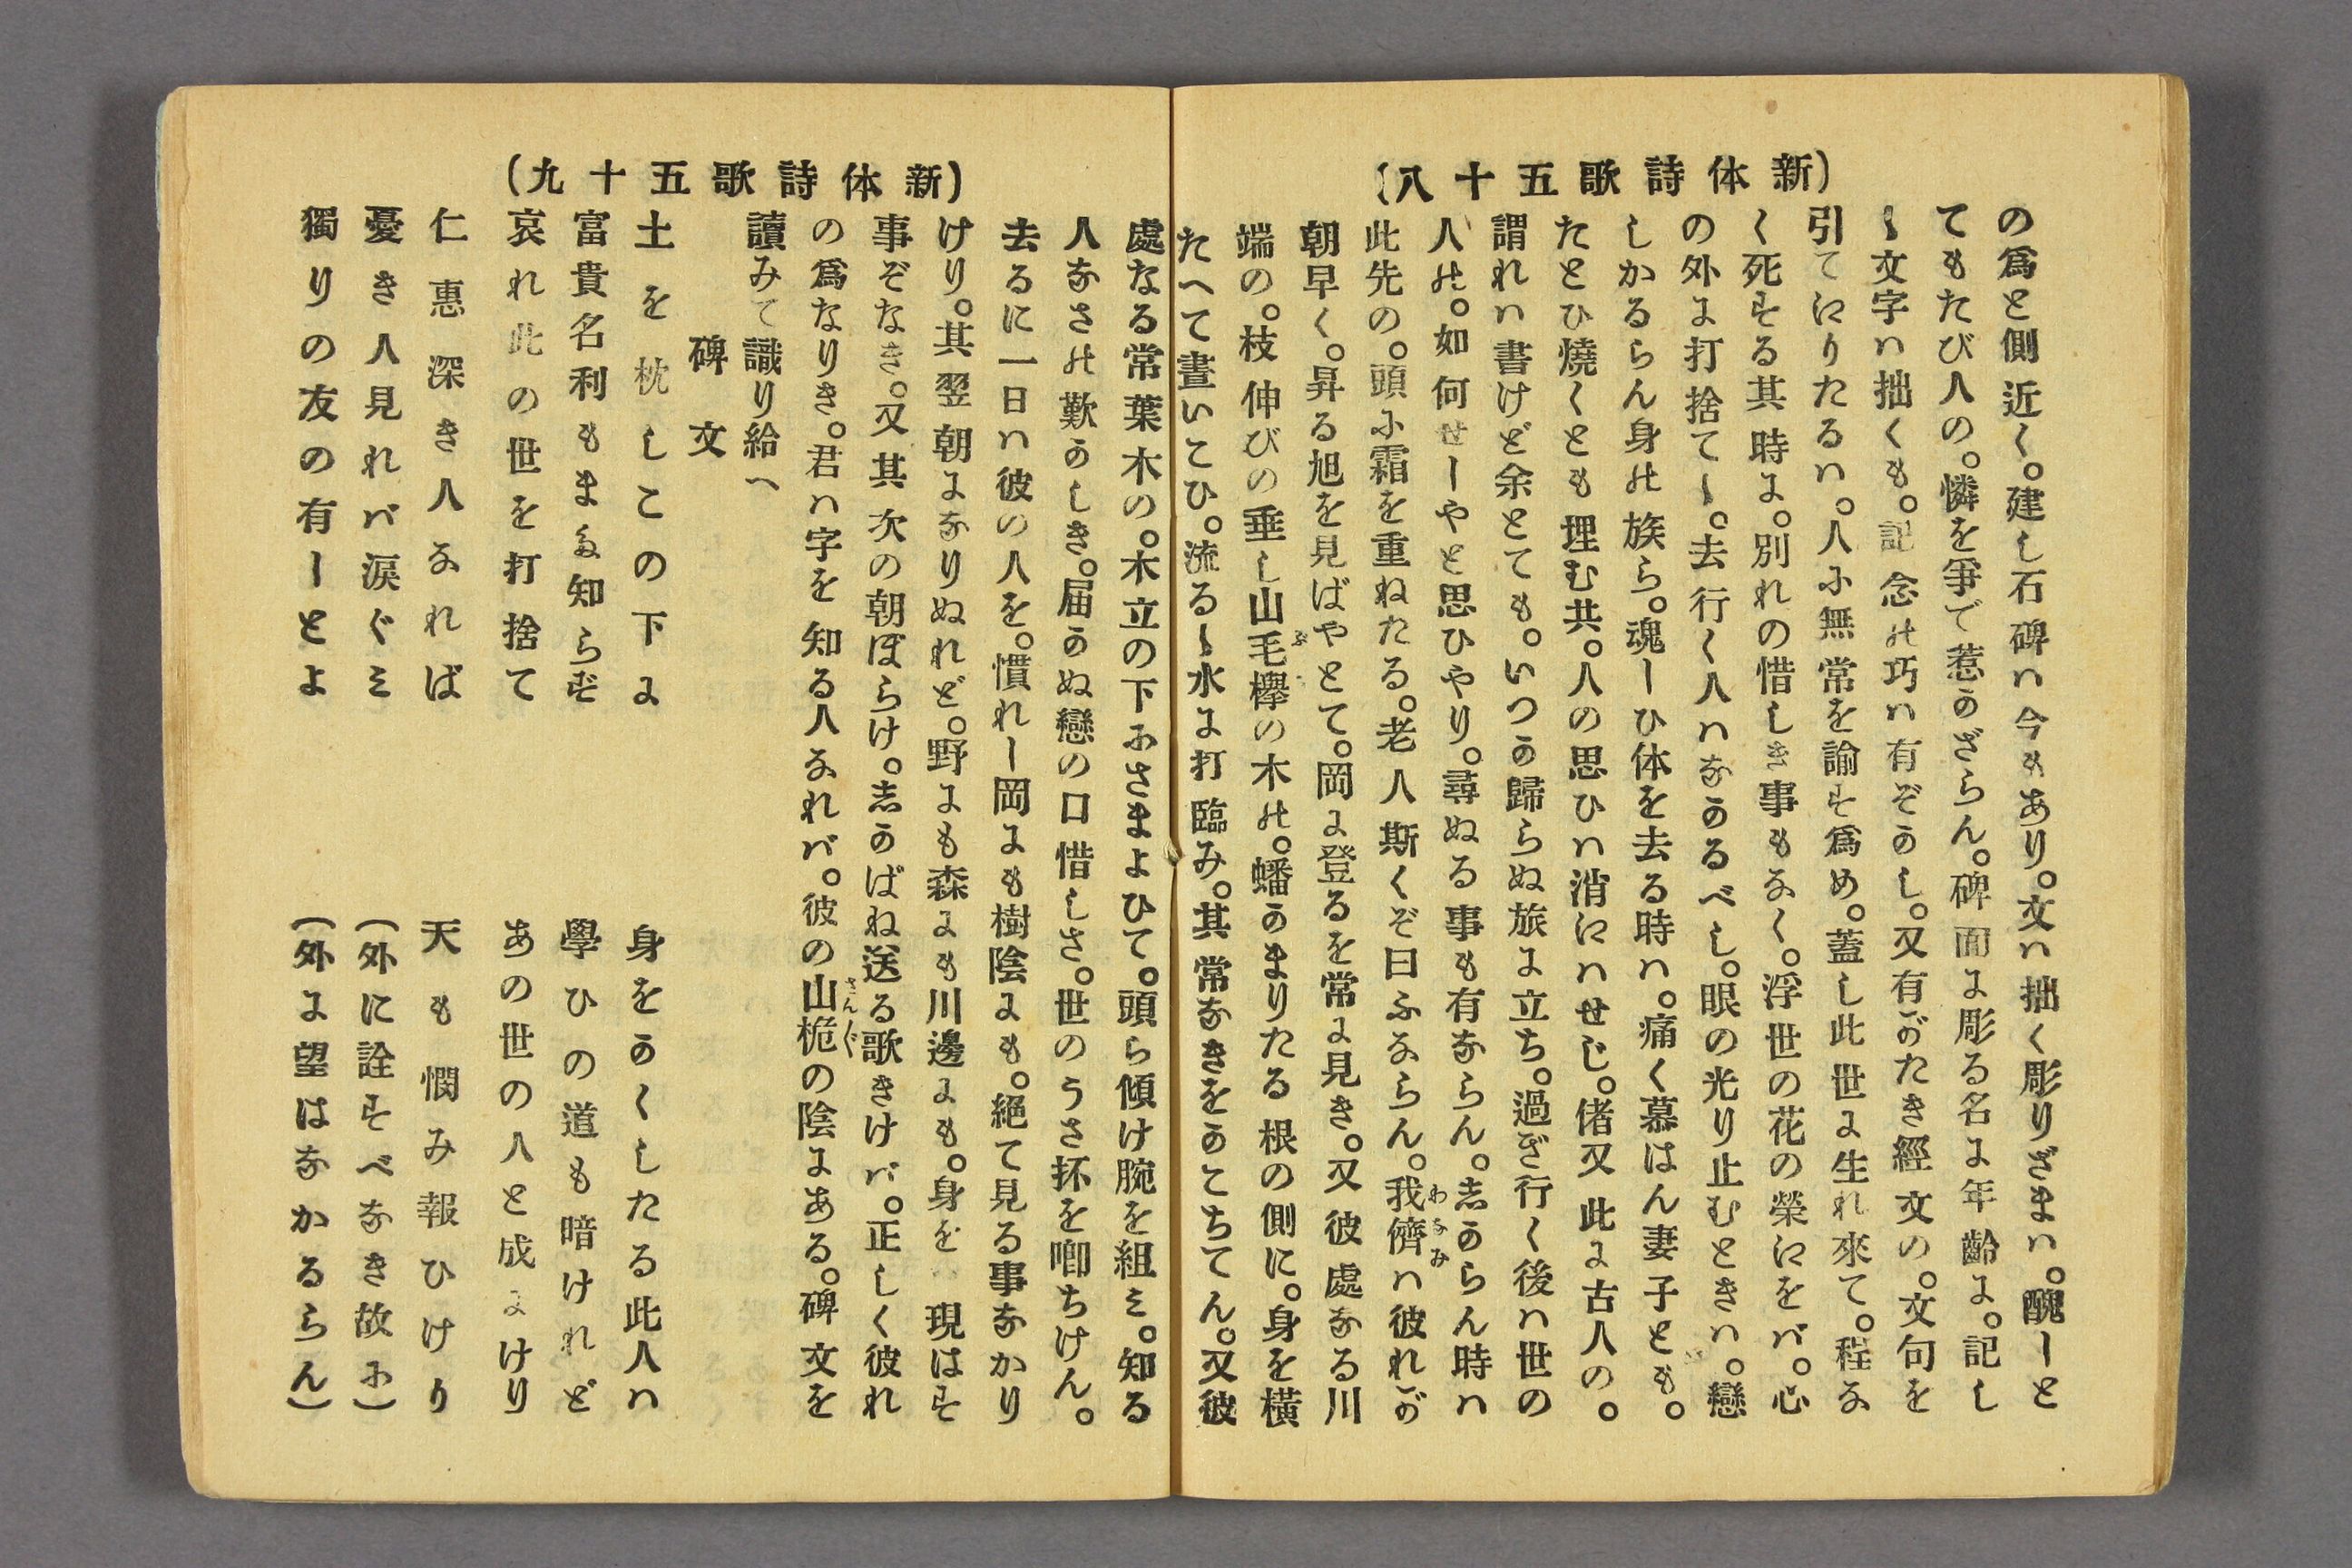 (新体詩歌五十八)
の爲と側近く。建し石碑ハ今もあり。文ハ拙く彫りざまハ。醜ーと
てもたび人の。憐を爭で惹かざらん。碑面に彫る名に年齡に。記し
し文字ハ拙くも。記念の巧ハ有ぞかし。又有がたき經文の。文句を
引てにりたるハ。人に無常を諭す爲め。蓋し此世に生れ來て。程な
く死する其時に。別れの惜しき事もなく。浮世の花の榮にをバ。心
の外に打捨てし。去行く人ハなかるべし。眼の光り止むときハ。戀
しかるらん身の族ら。魂ーひ体を去る時ハ。痛く慕はん妻子とも。
たとひ燒くとも埋む共。人の思ひハ消にハせじ。偖又此に古人の。
謂れハ書けど余とても。いつか歸らぬ旅に立ち。過ぎ行く後ハ世の
人の。如何せーやと思ひやり。尋ぬる事も有ならん。志からん時ハ
此先の。頭に霜を重ねたる。老人斯くぞ曰ふならん。我儕ハ彼れが
朝早く。昇る旭を見ばやとて。岡に登るを常に見き。又彼處なる川
端の。枝伸びの垂し山毛欅の木の。蟠かまりたる根の側に。身を橫
たへて晝いこひ。流るし水に打臨み。其常なきをかこちてん。又彼
(新体詩歌五十九)
處なる常葉木の。木立の下にさまよひて。頭ら傾け腕を組ミ。知る
人なさの歎かしき。届かぬ戀の口惜しさ。世のうさ抔を喞ちけん。
去るに一日ハ彼の人を。慣れー岡にも樹陰にも。絕て見る事なかり
けり。其翌朝になりぬれど。野にも森にも川邊にも。身をハ現はす
事ぞなき。又其次の朝ぼらけ。志かばね送る歌きけバ。正しく彼れ
の爲なりき。君ハ字を知る人なれバ。彼の山梔の陰にある。碑文を
讀みて識り給へ
碑文
土を枕しこの下に 身をかくしたる此人ハ
富貴名利もまた知らず 學ひの道も暗けれど
哀れ此の世を打捨て あの世の人と成にけり
仁惠深き人なれば 天も憫み報ひけり
憂き人見れバ淚ぐミ (外に詮すべなき故に)
獨りの友の有ーとよ (外に望はなかるらん)